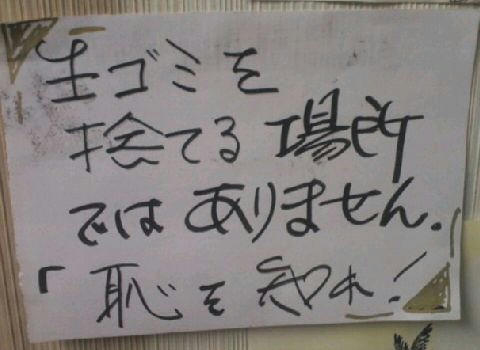 生ゴミを
捨てる場所
ではありません.
「恥を知れ!